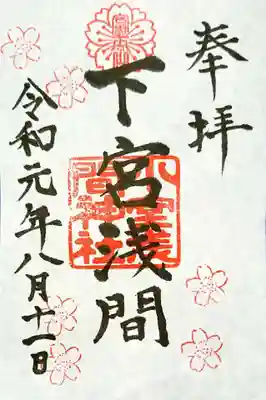 奉拝
下宮浅間
小室浅
間神社
令和元年八月十一日